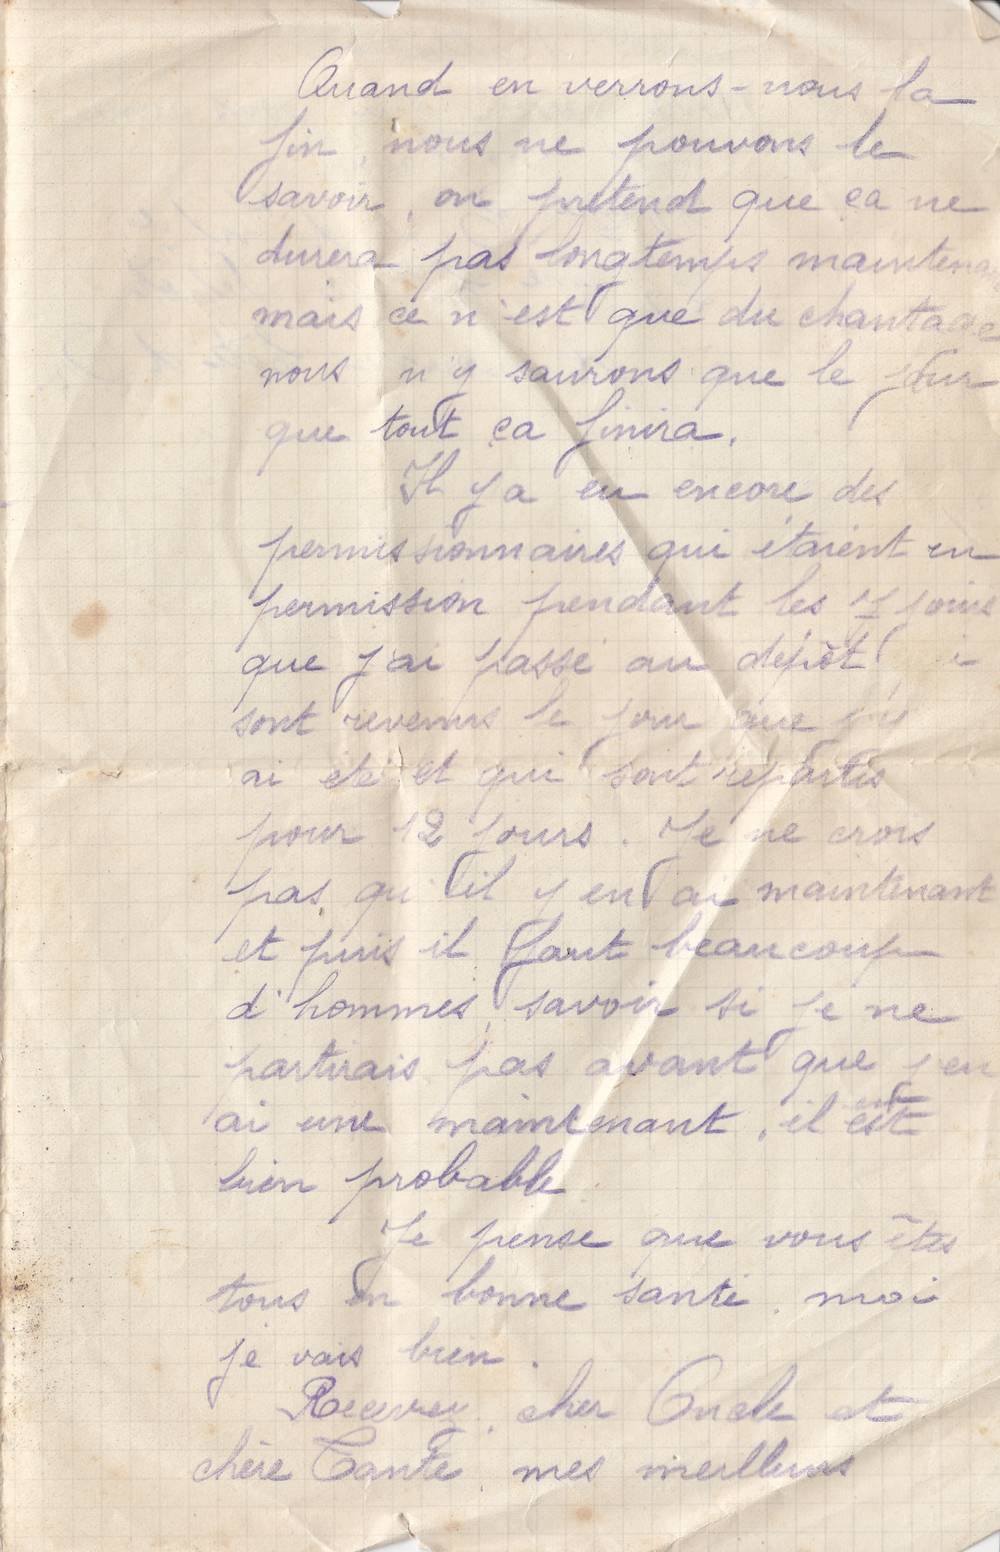 Quand en verrons-nous la
fin, nous ne pouvons le
savoir, on prétend que ça ne
durera pas longtemps maintena
mais ce n'est que du chantage
nous n'y saurons que le jour
que tout ça finira.
Il y a eu encore des
permissionnaires qui étaient en
permission pendant les jours
que j'ai passé au dépôt
sont revenus le jour que j'y
ai été et qui sont repartis
pour 12 jours. Je ne crois
pas qu'il y en ai maintenant
et puis il faut beaucoup
d'hommes, savoir si je ne
partirais pas avant que j'en
ai une maintenant, il est
bien probable
Je pense que vous êtes
tous en bonne santé, moi
je vais bien.
Recevez, cher Oncle et
chère Tante mes meilleurs